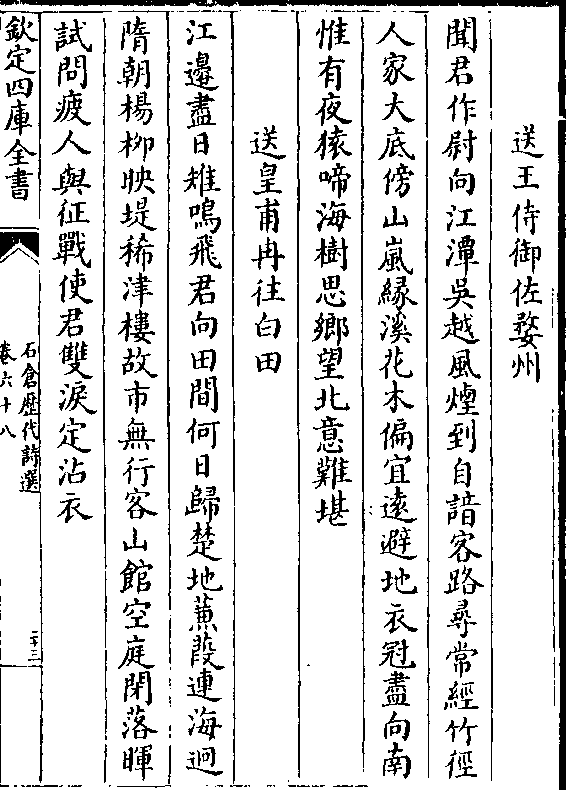 送王侍御佐婺州
聞君作尉向江潭吳越風煙到自諳客路尋常經竹徑
人家大底傍山嵐緣溪花木偏宜遠避地衣冠盡向南
惟有夜猿啼海樹思鄉望北意難堪
送皇甫冉往白田
江邊盡日雉鳴飛君向田間何日歸楚地蒹葭連海迥
隋朝楊柳映堤稀津樓故市無行客山館空庭閉落暉
試問疲人與征戰使君雙淚定沾衣
欽定四庫全書
石倉歷代詩選
卷六十八
二十三